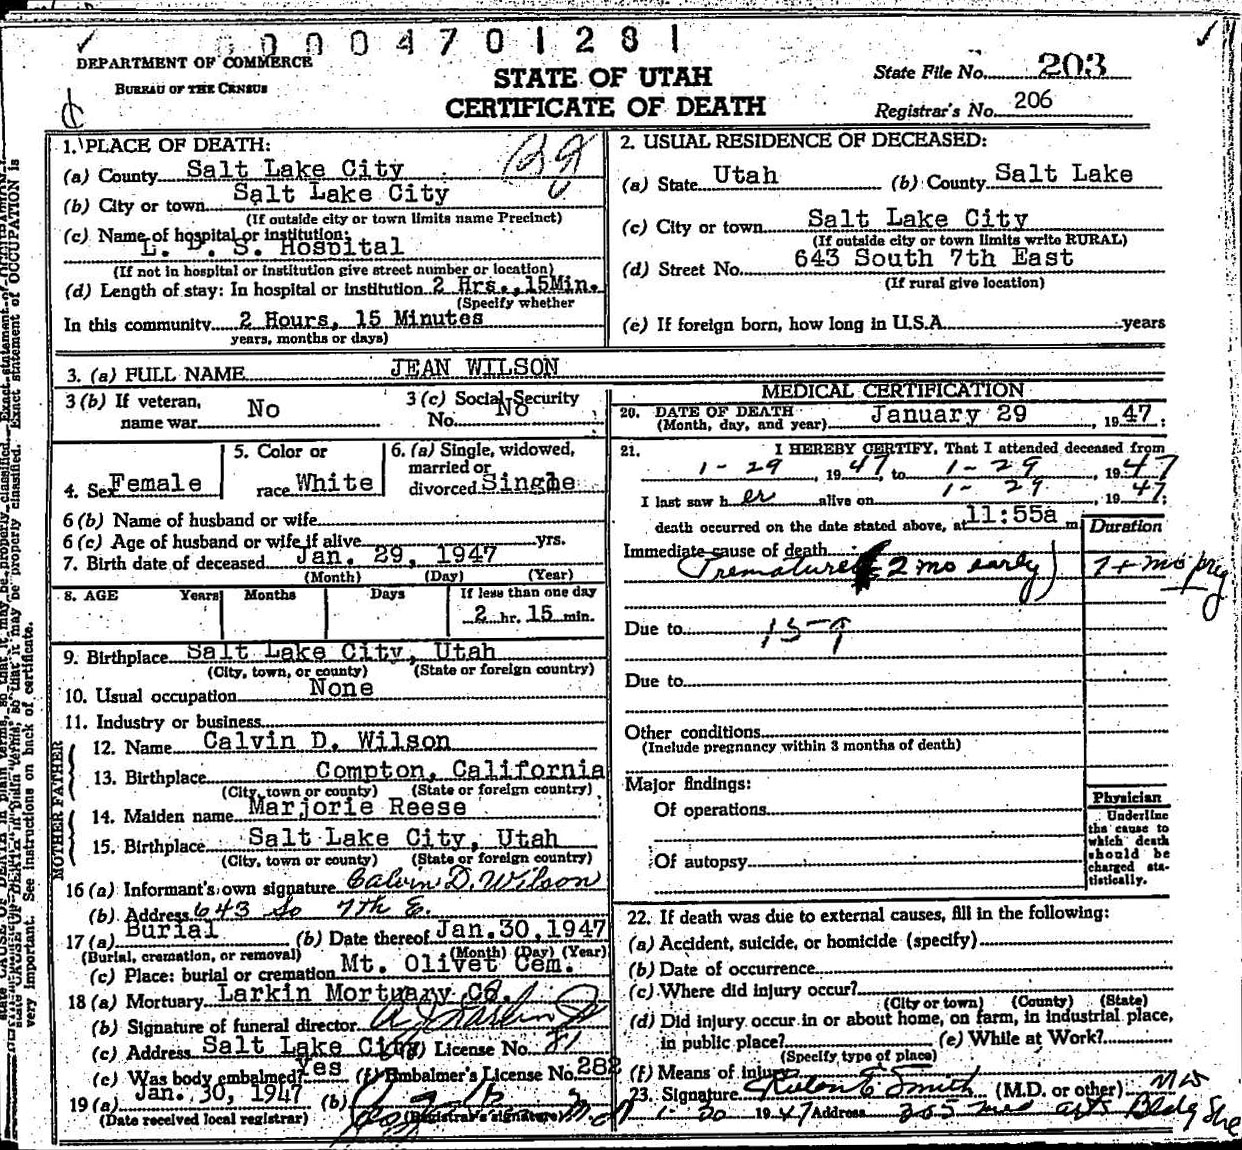 00004701281
DEPARTMENT OF COMMERCE
BUREAU OF THE CENSUS
STATE OF UTAH
CERTIFICATE OF DEATH
State File No. 203
Registrar's No. 206
1. PLACE OF DEATH:
(a) County Salt Lake City
(b) City or town Salt Lake City
(If outside city or town limits name Precinct)
(c) Name of hospital or institution:
L. D. S. Hospital
(If not in hospital or institution give street number or location)
(d) Length of stay: In hospital or institution 2 Hrs., 15Min.
(Specify whether
In this community 2 Hours, 15 Minutes
years, months or days)
2. USUAL RESIDENCE OF DECEASED:
(a) State Utah (b) County Salt Lake
(c) City or town Salt Lake City
(If outside city or town limits write RURAL)
(d) Street No. 643 South 7th East
(If rural give location)
(e) If foreign born, how long in U.S.A. years
3. (a) FULL NAME JEAN WILSON
3 (b) If veteran, name war No
3 (c) Social Security No. No
4. Sex Female
5. Color or race White
6. (a) Single, widowed, married or divorced Single
6 (b) Name of husband or wife
6 (c) Age of husband or wife if alive yrs.
7. Birth date of deceased Jan. 29, 1947
(Month) (Day) (Year)
8. AGE Years Months Days If less than one day
2 hr. 15 min.
9. Birthplace Salt Lake City, Utah
(City, town, or county) (State or foreign country)
10. Usual occupation None
11. Industry or business
FATHER
12. Name Calvin D. Wilson
13. Birthplace Compton, California
(City, town or county) (State or foreign country)
MOTHER
14. Maiden name Marjorie Reese
15. Birthplace Salt Lake City, Utah
(City, town or county) (State or foreign country)
16 (a) Informant's own signature Calvin D. Wilson
(b) Address 643 So 7th E.
17 (a) Burial (b) Date thereof Jan. 30, 1947
(Burial, cremation, or removal) (Month) (Day) (Year)
(c) Place: burial or cremation Mt. Olivet Cem.
18 (a) Mortuary Larkin Mortuary Co.
(b) Signature of funeral director
(c) Address Salt Lake City (d) License No. 81
(e) Was body embalmed? Yes (f) Embalmer's License No. 282
19 (a) Jan. 30, 1947 (b)
(Date received local registrar) (Registrar's signature)
MEDICAL CERTIFICATION
20. DATE OF DEATH January 29, 1947;
(Month, day, and year)
21. I HEREBY CERTIFY, That I attended deceased from
1-29, 1947, to 1-29, 1947
I last saw her alive on 1-29, 1947;
death occurred on the date stated above, at 11:55a m.
Duration
Immediate cause of death
Premature (2 mo early) 7+ mo preg
Due to 159
Due to
Other conditions
(Include pregnancy within 3 months of death)
Major findings:
Of operations
Of autopsy
Physician
Underline the cause to which death should be charged statistically.
22. If death was due to external causes, fill in the following:
(a) Accident, suicide, or homicide (specify)
(b) Date of occurrence
(c) Where did injury occur?
(City or town) (County) (State)
(d) Did injury occur in or about home, on farm, in industrial place,
in public place? (e) While at Work?
(Specify type of place)
(f) Means of injury
23. Signature Smith (M.D. or other) MD
1-30 1947 Address Bldg
very important. See instructions on back of certificate.